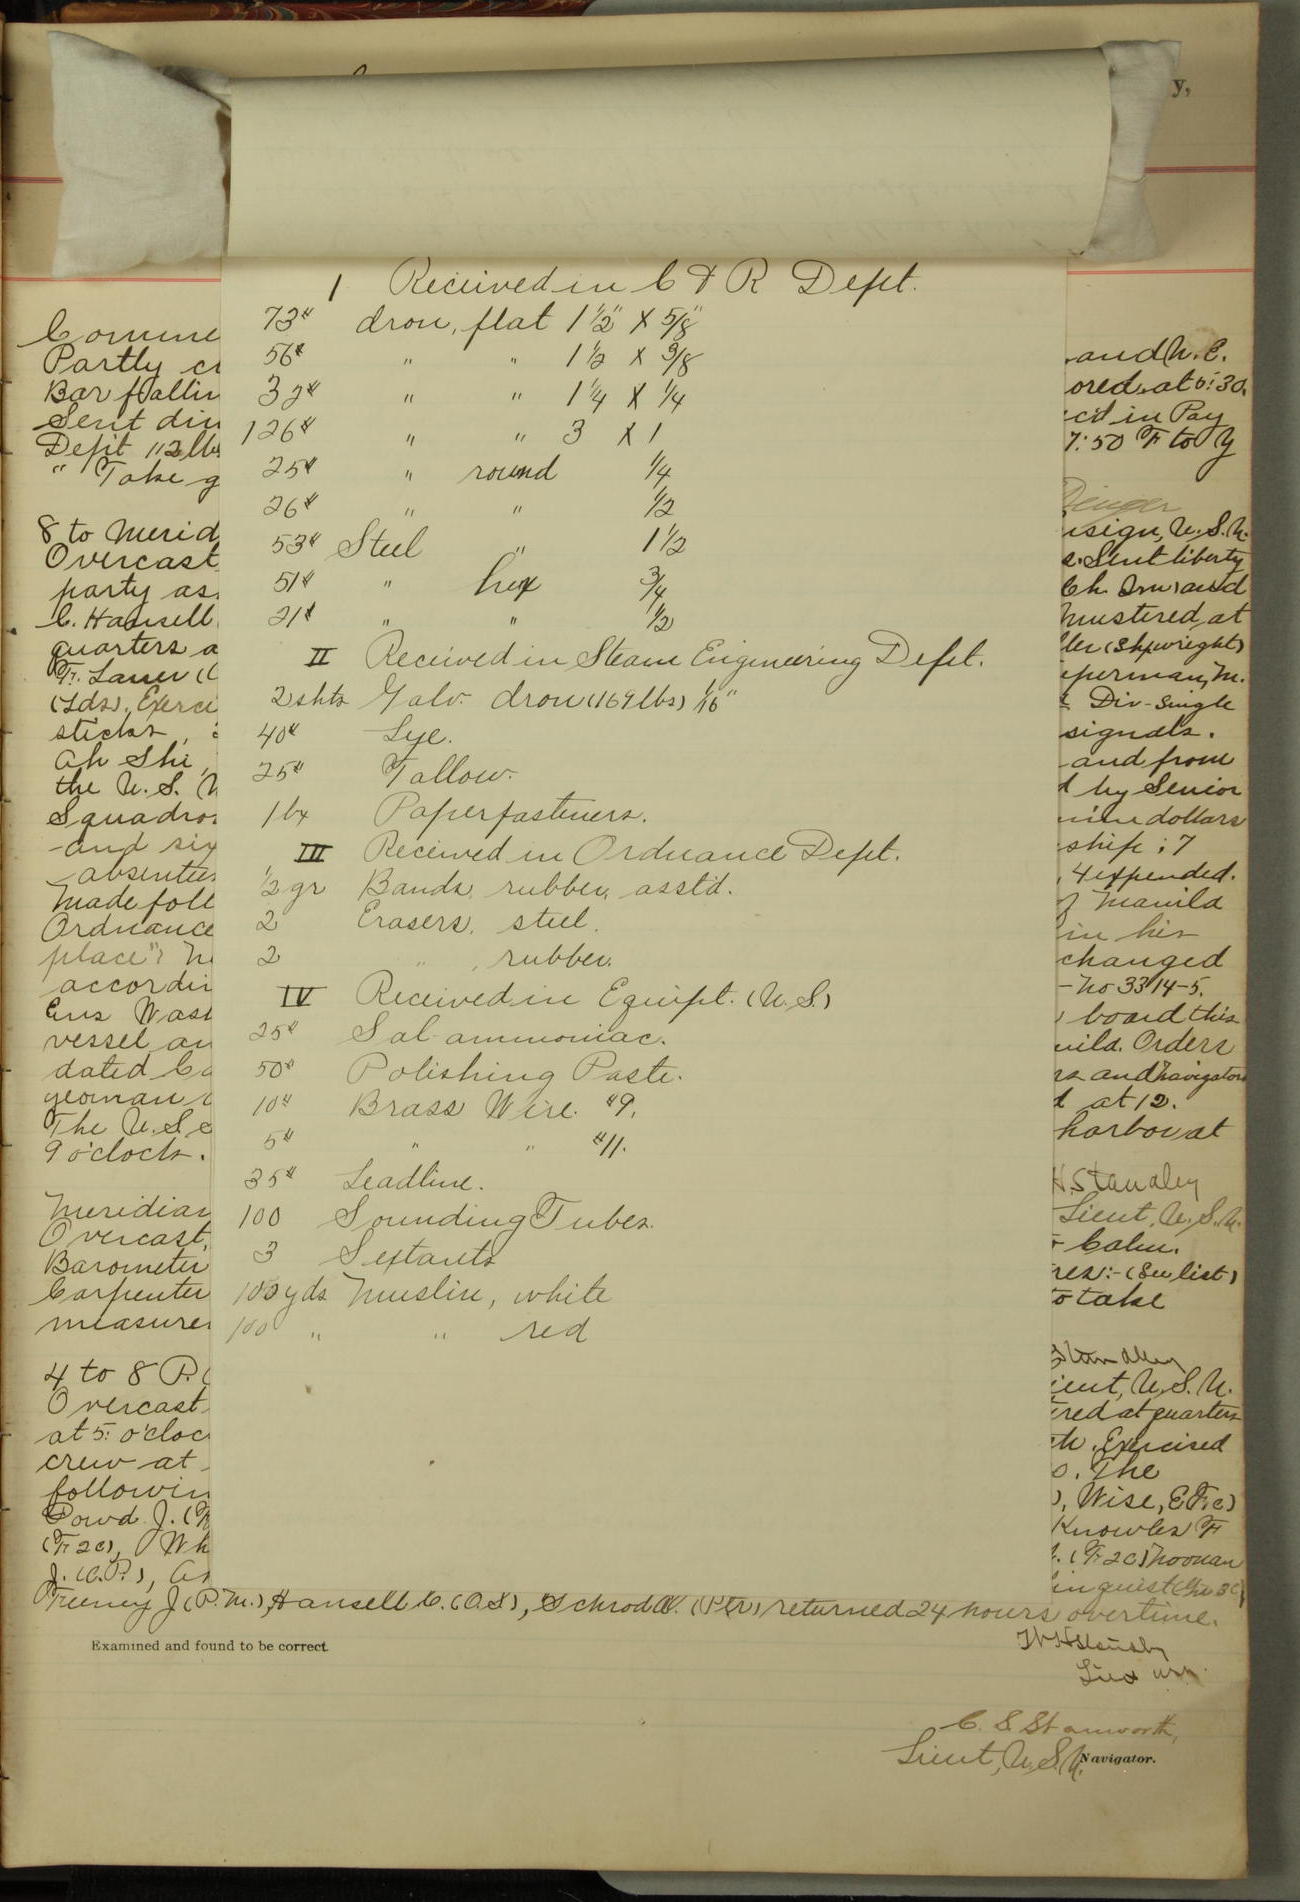 y,
1 Received in C & R Dept.
73# Iron, flat 1 1/2" X 5/8"
56# " " 1 1/2 X 3/8
32# " " 1 1/4 X 1/4
126# " " 3 X 1
25# " round 1/4
26# " " 1/2
53# Steel " 1 1/2
51# " hex 3/4
21# " " 1/2
II Received in Steam Engineering Dept.
2 shts Galv. Iron (169 lbs) 1/16"
40# Lye.
25# Tallow.
1 bx Paperfasteners.
III Received in Ordnance Dept.
1/2 gr Bands, rubber, asst'd.
2 Erasers, steel.
2 " , rubber.
IV Received in Equipt. (U.S.)
25# Sal-ammoniac.
50# Polishing Paste.
10# Brass Wire. #9.
5# " " #11.
35# Leadline.
100 Sounding Tubes.
3 Sextants
100 yds Muslin, white
100 " " red
Comme
Partly cl
Bar fallin
Sent din
Dep't 112 lbs
" Take g
8 to Merid
Overcast
party as
C. Hansell
quarters a
F. Lauer (C
(Lds), Exerci
sticks,
Ah Shi,
the U.S. N
Squadro
and six
absentees
Made foll
Ordnance
place": N
accordin
Ens Was
vessel an
dated Ca
yeoman
The U.S.
9 o'clock.
Meridian
Overcast,
Barometer
Carpenter
measure
4 to 8 P.
Overcast
at 5: o'cloc
crew at
followin
Dowd J. (
(F2c), Wh
J. (C.P.), As
and N. E.
ored at 6:30.
ec'd in Pay
7:50 F to Y
nsign, U.S.N.
s. Sent liberty
Ch. Inw) and
mustered at
ler (Shipwright)
perman, M.
Div-Single
signals.
and from
d by Senior
nine dollars
ship; 7
, 4 expended.
of Manila
in his
changed
-No 3314-5.
board this
nila. Orders
rs and Navigators
d at 12.
harbor at
H. Standley
Lieut, U.S.N.
Calm.
res:-(See list)
to take
Standley
ieut, U.S.N.
red at quarters
th. Exercised
o. The
), Wise, E (F2c)
Knowles F
. (F2c) Noonan
inquist (Gm 3c)
Feeney J (P.M.), Hansell C. (O.S), Schrod W. (Ptr) returned 24 hours overtime.
Examined and found to be correct.
C. S. Stanworth,
Lieut, U.S.N. Navigator.